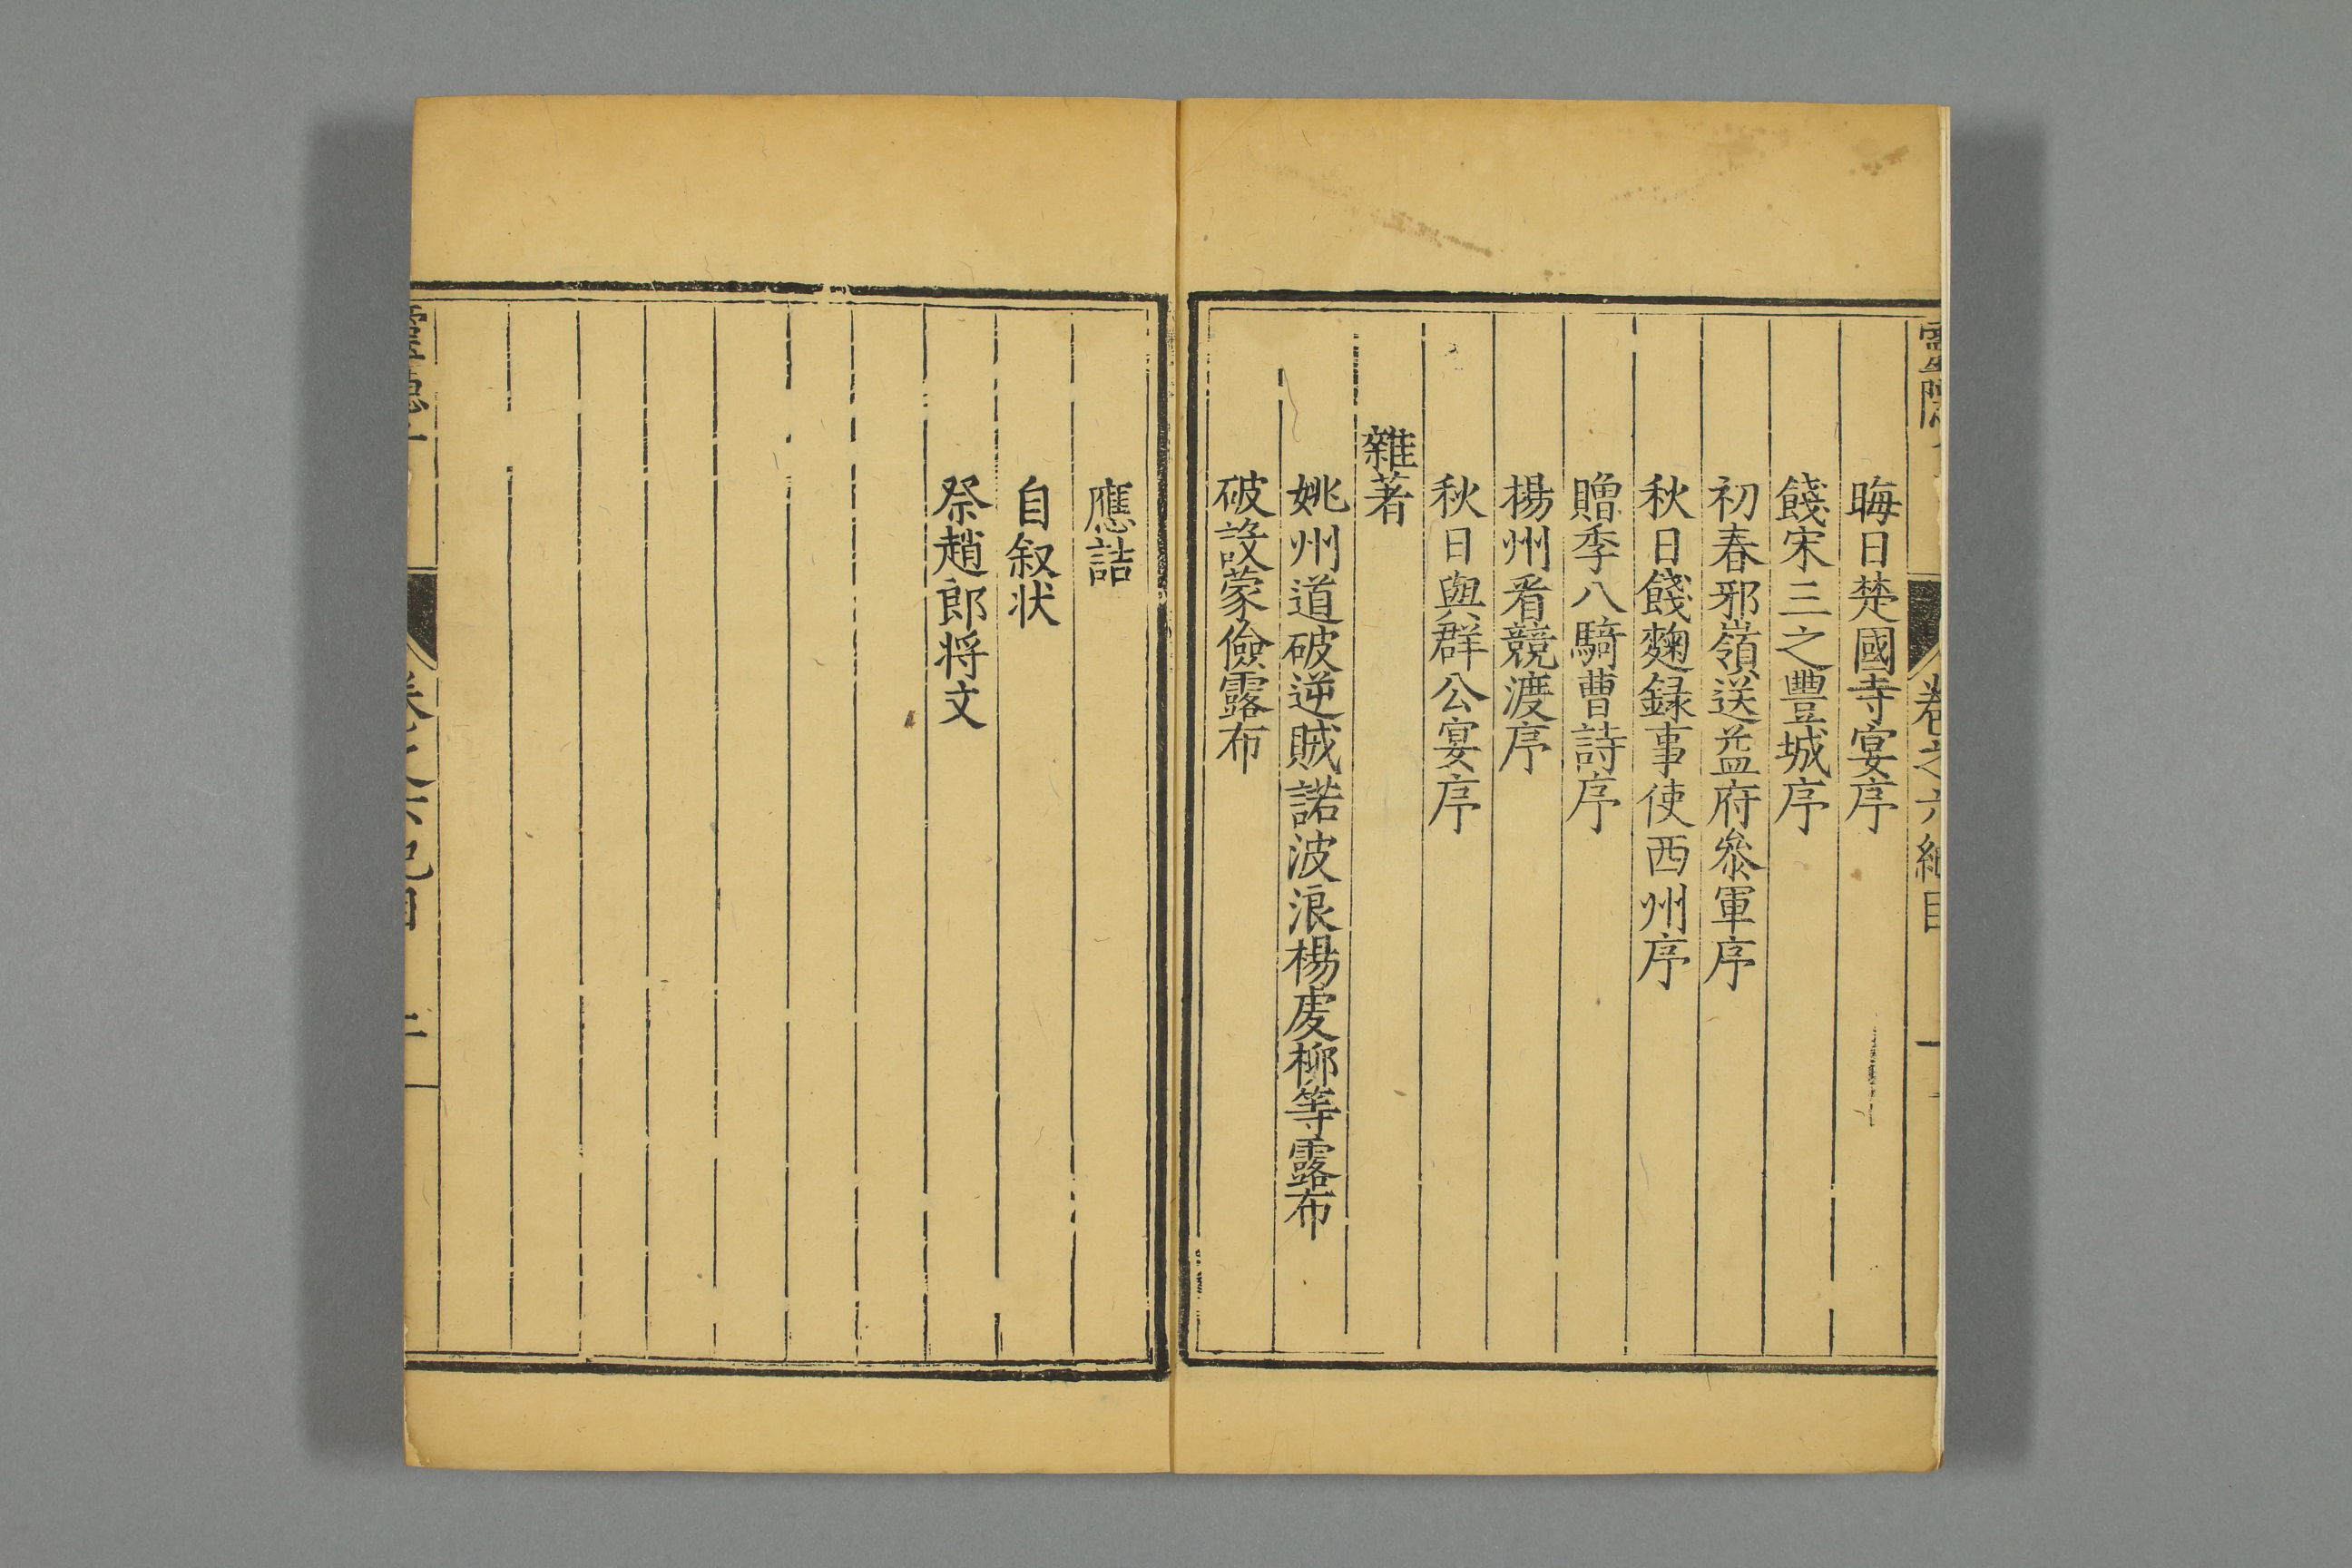 卷之六細目
晦日楚國寺宴序
餞宋三之豐城序
初春邪嶺送益府叅軍序
秋日餞麴録事使西州序
贈季八騎曹詩序
楊州㸔競渡序
秋日與群公宴序
雜著
姚州道破逆賊諾波浪楊䖍柳等露布
破設蒙儉露布
應詰
自叙状
祭趙郎将文